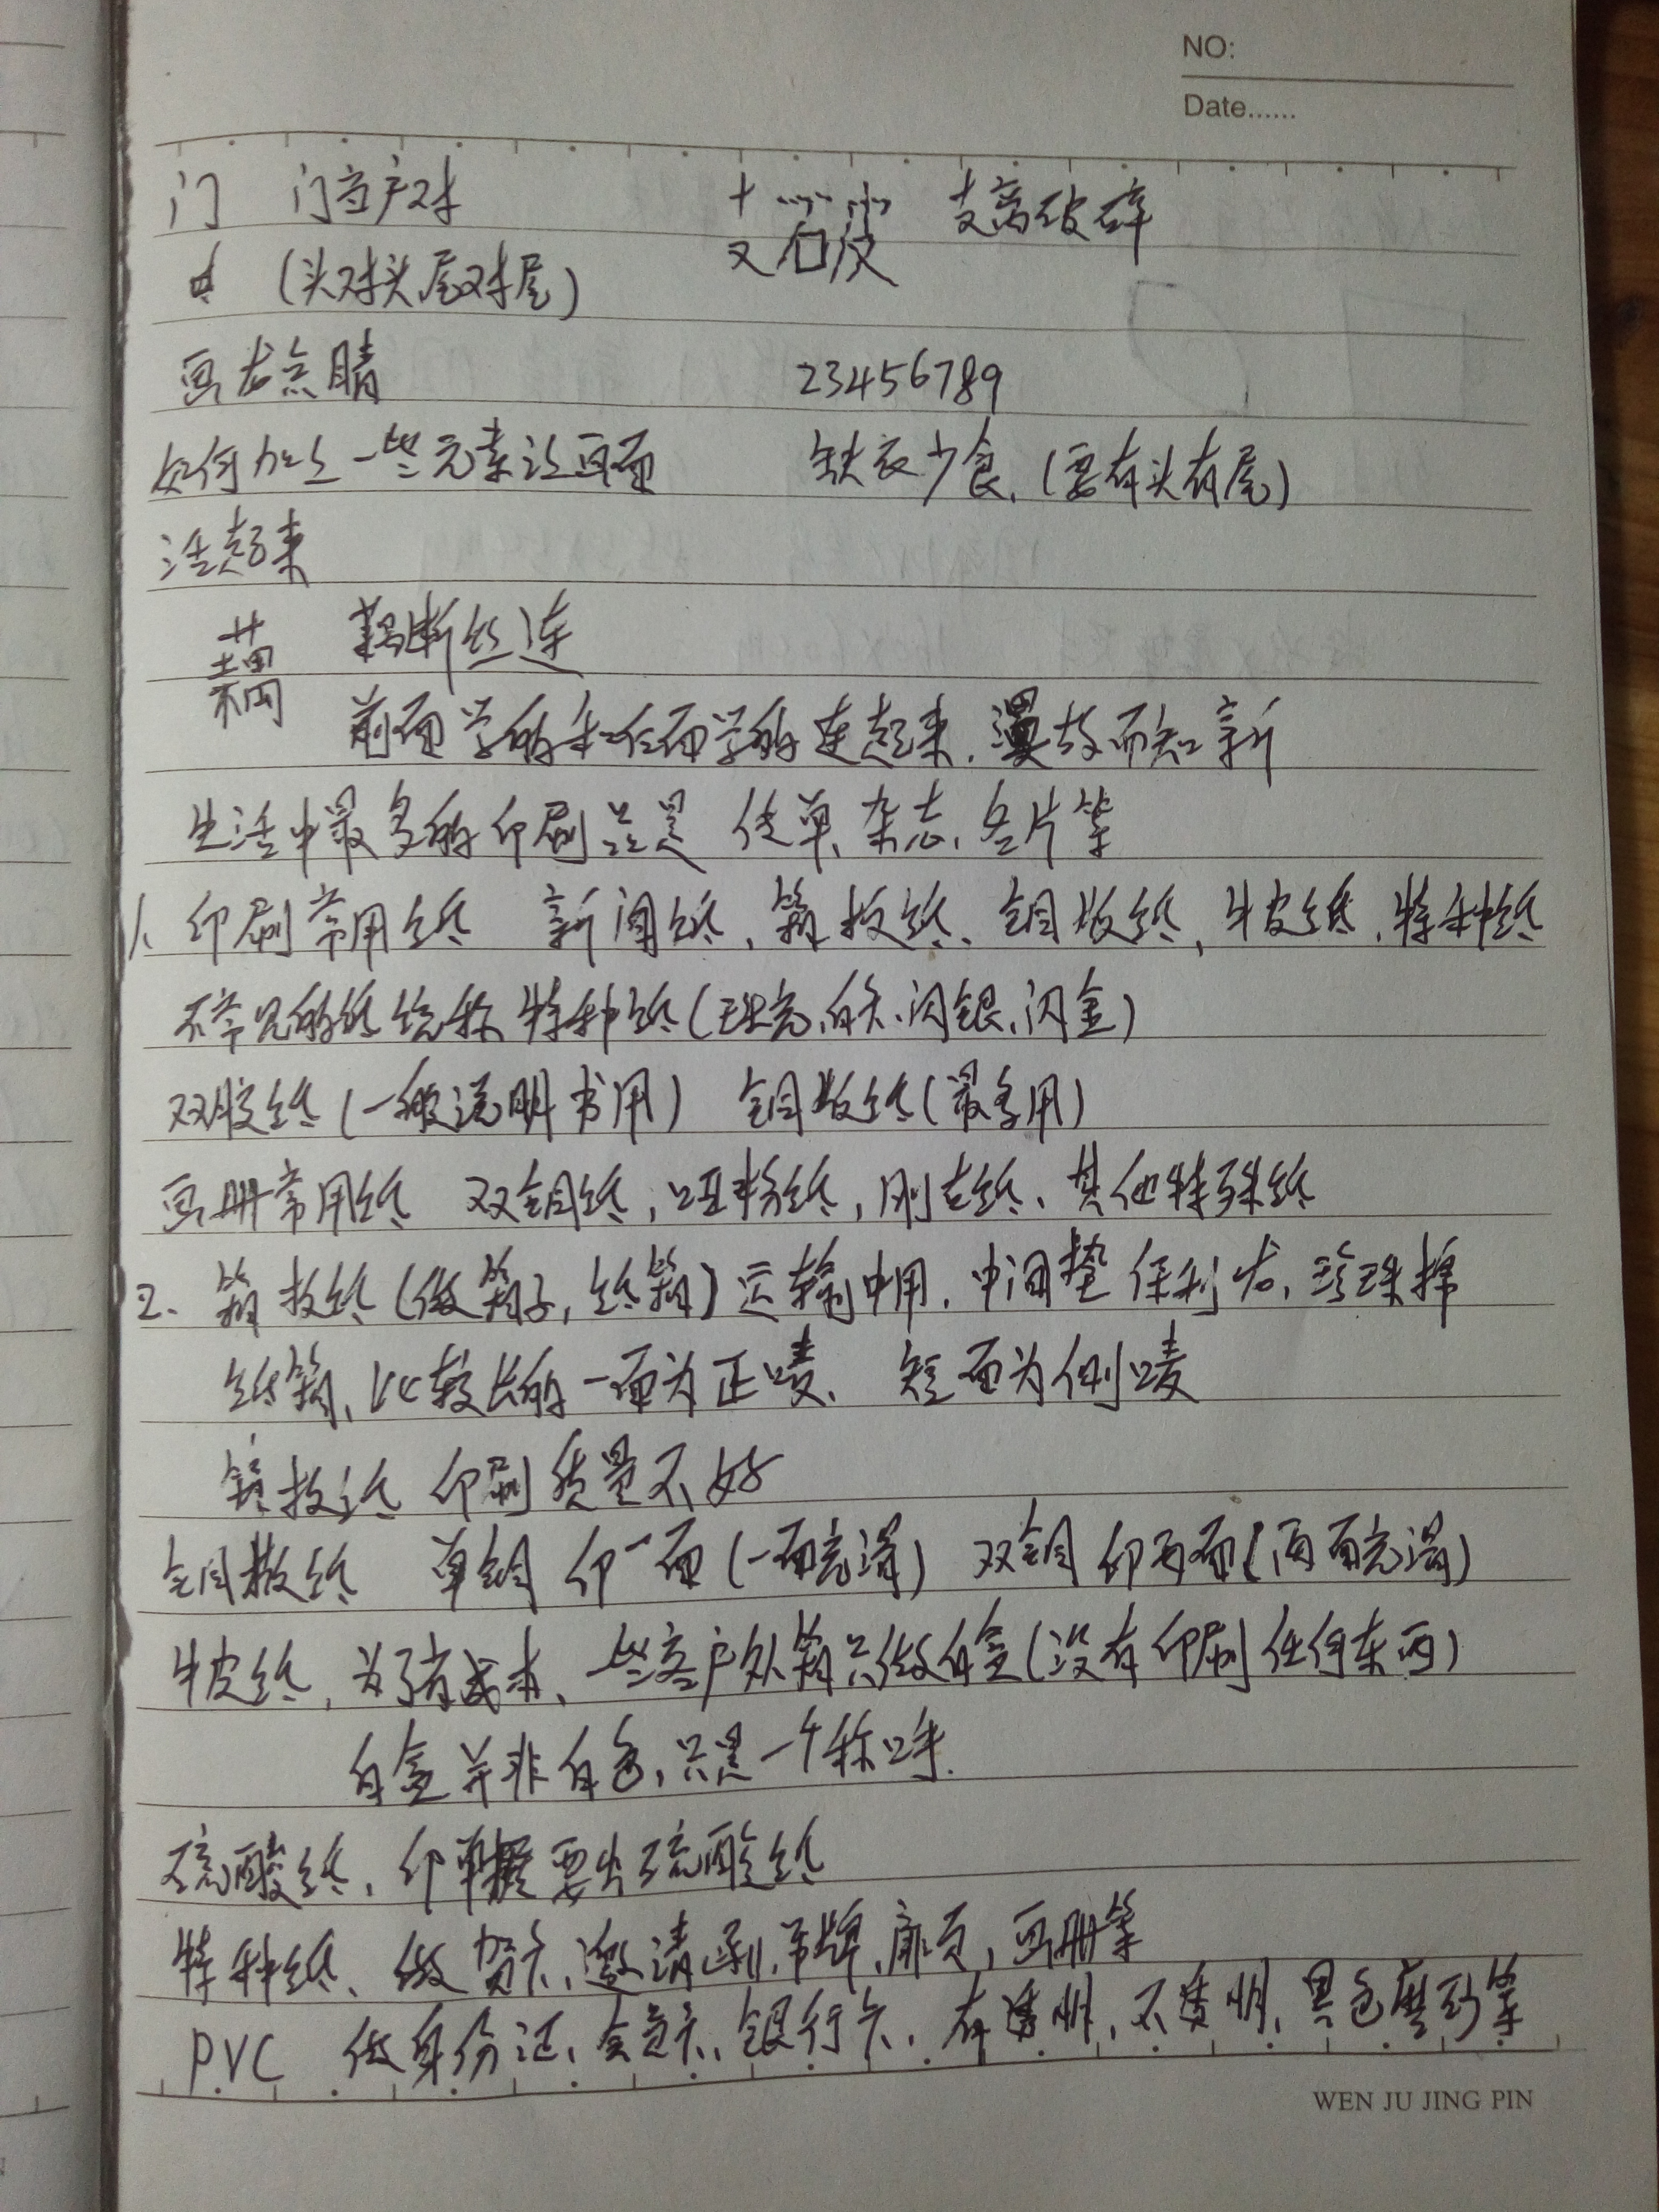 NO:
Date......
门 门当户对 支离破碎
(头对头尾对尾)
画龙点睛 23456789
如何加上一些元素让画面 缺衣少食.(要有头有尾)
活起来
藕 藕断丝连
前面学的和后面学的连起来.温故而知新
生活中最多的印刷品是 传单、杂志、名片等
1、印刷常用纸 新闻纸、箱板纸、铜版纸、牛皮纸、特种纸
不常见的纸统称特种纸(珠光、白卡、闪银、闪金)
双胶纸(一般说明书用) 铜版纸(最多用)
画册常用纸 双铜纸,哑粉纸,刚古纸、其他特殊纸
2、箱板纸(做箱子,纸箱)运输中用.中间垫保利龙,珍珠棉
纸箱、比较长的一面为正唛、短面为侧唛
箱板纸 印刷质量不好
铜板纸 单铜 印一面(一面光滑) 双铜 印两面(两面光滑)
牛皮纸、为了省成本、一些客户外箱只做白盒(没有印刷任何东西)
白盒并非白色,只是一个称呼.
硫酸纸、印 要出硫酸纸
特种纸、做贺卡、邀请函、吊牌、扉页,画册等
PVC 做身份证、会员卡、银行卡、有透明,不透明、黑色磨砂等
WEN JU JING PIN